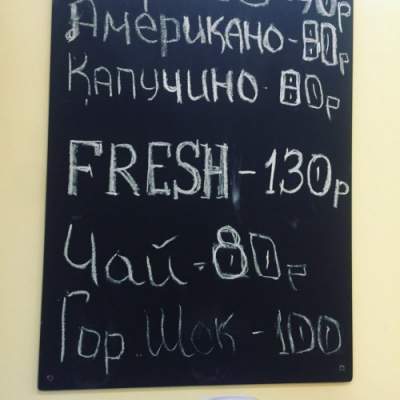 Американо-80р
Капучино-80р
FRESH-130р
Чай-80р
Гор. Шок-100